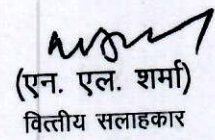 (एन. एल. शर्मा)
वित्तीय सलाहकार